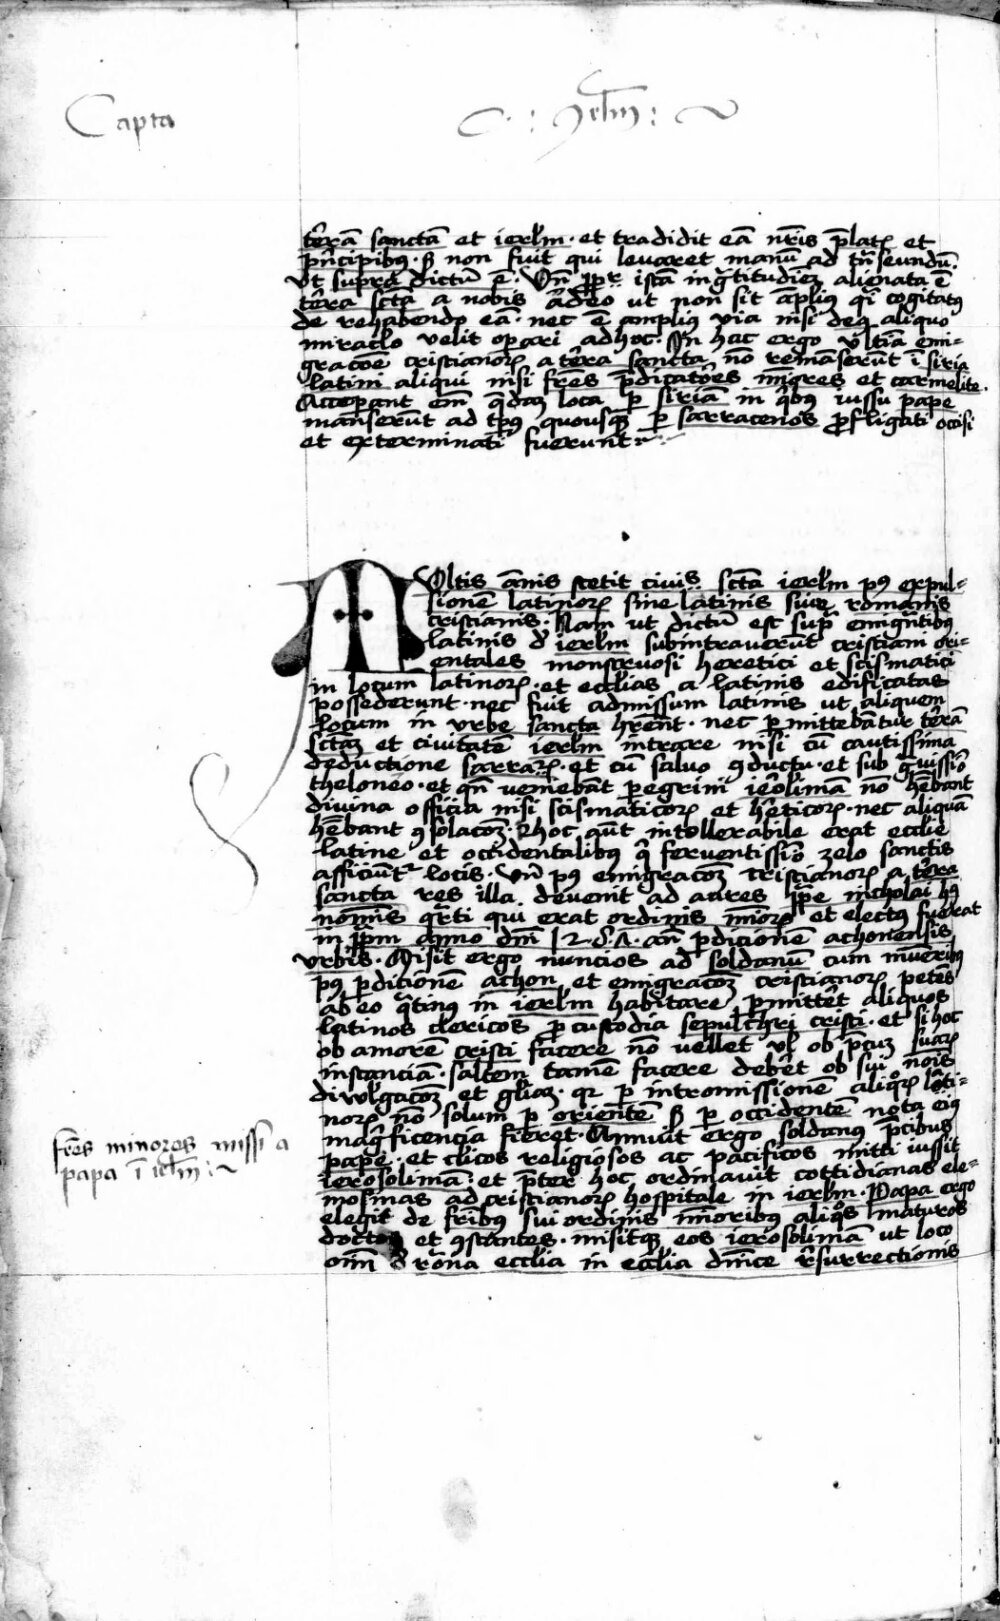 Capta
Jerlm
terā sanctā et ierl̄m · et tradidit eā nr̄is p̄latꝭ et
pn̄cipibꝰ · sꝫ non fuit qui leuaret manū ad tn̄seundū ·
vt supra dictū ē · Vn̄ ꝓpt̄ istā ing̃titudiēꝫ alienata ē
terra sctā a nobis adeo ut non sit ampliꝰ qi cogitatꝰ
de rehabendo eā · nec ē ampliꝰ via nisi deꝰ aliquo
miraclo velit oꝑari adhoc · In hac ergo vltīa emi-
gracōe cristianoꝝ a terra sancta nō remāserūt ī siria
latini aliqui nisi frēs p̄dicatōres mīores et carmelite ·
Acceperant em̄ q̄dā loca ꝑ siriā in qibꝰ iussu pape
manserunt ad tp̄ꝰ quousqꝫ ꝑ sarracenos ꝓfligati occisi
et exterminati fuerunt
MVltis ānis stetit ciuis sctā ierl̄m pꝰ expul-
sionē latinoꝝ sine latinis siue romanis
cristianis · Nam ut dictū est supͣ emigrātibꝰ
latinis d̓ ierl̄m subintrauerūt cristiani ori-
entales monstruosi heretici et scismatici
in locum latinoꝝ · et eccl̄ias a latinis edificatas
possederunt · nec fuit admissum latinis ut aliquem
locum in vrbe sancta hr̄ent · nec ꝑmittebātur terrā
sctāꝫ et ciuitatē ierl̄m intrare nisi cū cautissima
deductione sarraꝝ · et cū saluo ꝯductu · et sub gͣuissīo
theloneo · et qn̄ veniebāt peregrini ierosolimā nō hēbant
diuina officia nisi scismaticoꝝ et hēticoꝝ · nec aliquā
hēbant ꝯsolacōꝫ · Et hoc aūt intollerabile erat eccl̄ie
latine et occidentalibꝰ qi feruentissīo zelo sanctis
afficiūtᷣ locis · Vn̄ pꝰ emigracōꝫ cristianoꝝ a terra
sancta res illa deuenit ad aures pp̄e nicholai hꝰ
nominis qͣrti qui erat ordinis mīoꝝ et electꝰ fuerat
in pp̄m anno dn̄i 1288 · an̄ ꝑdicionē achonensis
vrbis · Misit ergo nuncios ad soldanū cum munerībꝰ
pꝰ ꝑdicionē achon et emigracōꝫ cristianoꝝ petēs
ab eo qͣtinꝰ in ierl̄m habitare ꝑmittēt aliquos
latinos clericos ꝓ custodia sepulchri cristi · et si hoc
ob amorē cristi facere nō uellet vl̄ ob p̄cum suaꝝ
instanciā · saltem tamē facere debēt ob sui nōis
diuulgacōꝫ et gl̄iaꝫ · qꝛ ꝑ intromissionē aliqͦꝝ lati-
noꝝ nō solum ꝑ orientē sꝫ ꝑ occidentē nota eiꝰ
magͥficencia fieret · Annuit ergo soldanus p̄cibus
pape · et clīcos religiosos ac pacificos mitti iussit
ierosolimā : et p̄ter hoc ordinauit cottidianas ele-
mosinas ad cristianoꝝ hospitale in ierl̄m · Papa ergo
elegit de fr̄ibus sui ordinis mīoribus aliqͦs maturos
doctos et ꝯstantes · misitqꝫ eos ierosolimā ut loco
oīm d̓ rōna eccl̄ia in eccl̄ia dn̄ice rsurrectionis
frēs minores missi a
papa ī ierl̄m